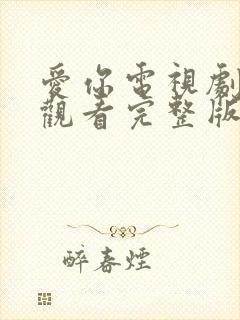 愛你電視劇
觀看完整版
醉春煙